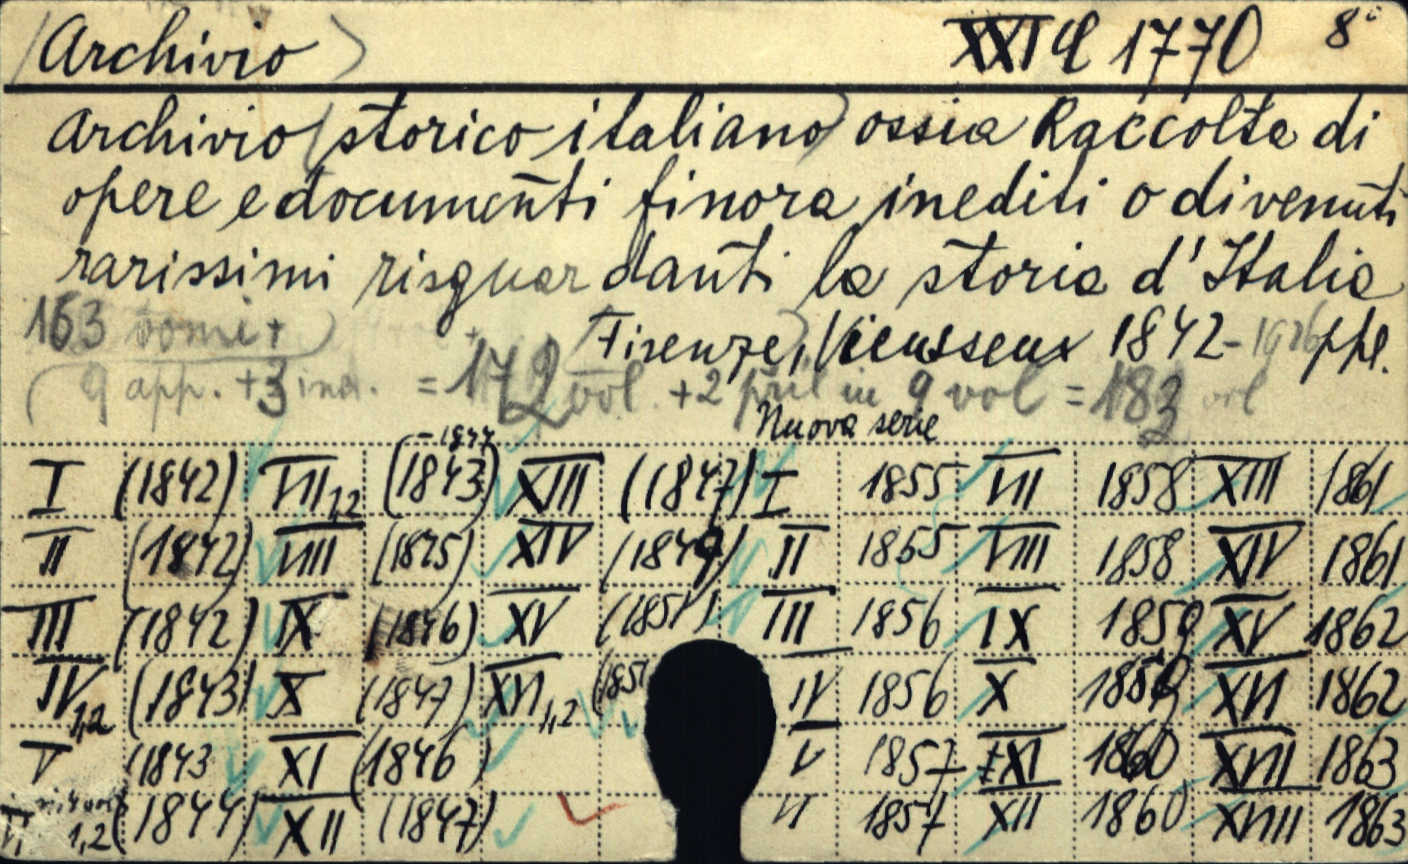 (Archivio) XXI q 1770 8°
Archivio (storico italiano) ossia Raccolta di
opere e documenti finora inediti o divenuti
rarissimi risguardanti la storia d'Italia
163 tomi + Firenze, Vieusseux 1842-1926 ppl.
(9 app. + 3 ind. = 172 vol. + 2 příl in 9 vol = 183 vol
Nuova serie
I (1842) VII 1,2 (1843-1844) XIII (1847) I 1855 VII 1858 XIII 1861
II (1842) VIII (1845) XIV (1849) II 1855 VIII 1858 XIV 1861
III (1842) IX (1846) XV (1851) III 1856 IX 1859 XV 1862
IV 1,2 (1843) X (1847) XVI 1,2 (1851 IV 1856 X 1859 XVI 1862
V (1843 XI (1846 V 1857 XI 1860 XVII 1863
VI 1,2 (1844) XII (1847) VI 1857 XII 1860 XVIII 1863